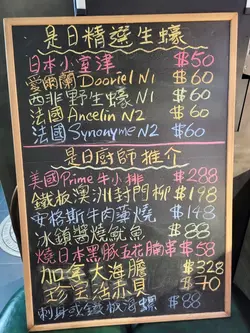 是日精選生蠔
日本小室津 $50
愛爾蘭Dooriel N1 $60
西非野生蠔N1 $60
法國Ancelin N2 $60
法國Synonyme N2 $60
是日廚師推介
美國Prime牛小排 $288
鐵板澳洲封門柳 $198
安格斯牛肉薄燒 $148
冰鎮醬燒魷魚 $88
燒日本黑豚五花腩串 $58
加拿大海膽 $328
珍宝活赤貝 $70
刺身或鐵板海螺 $88